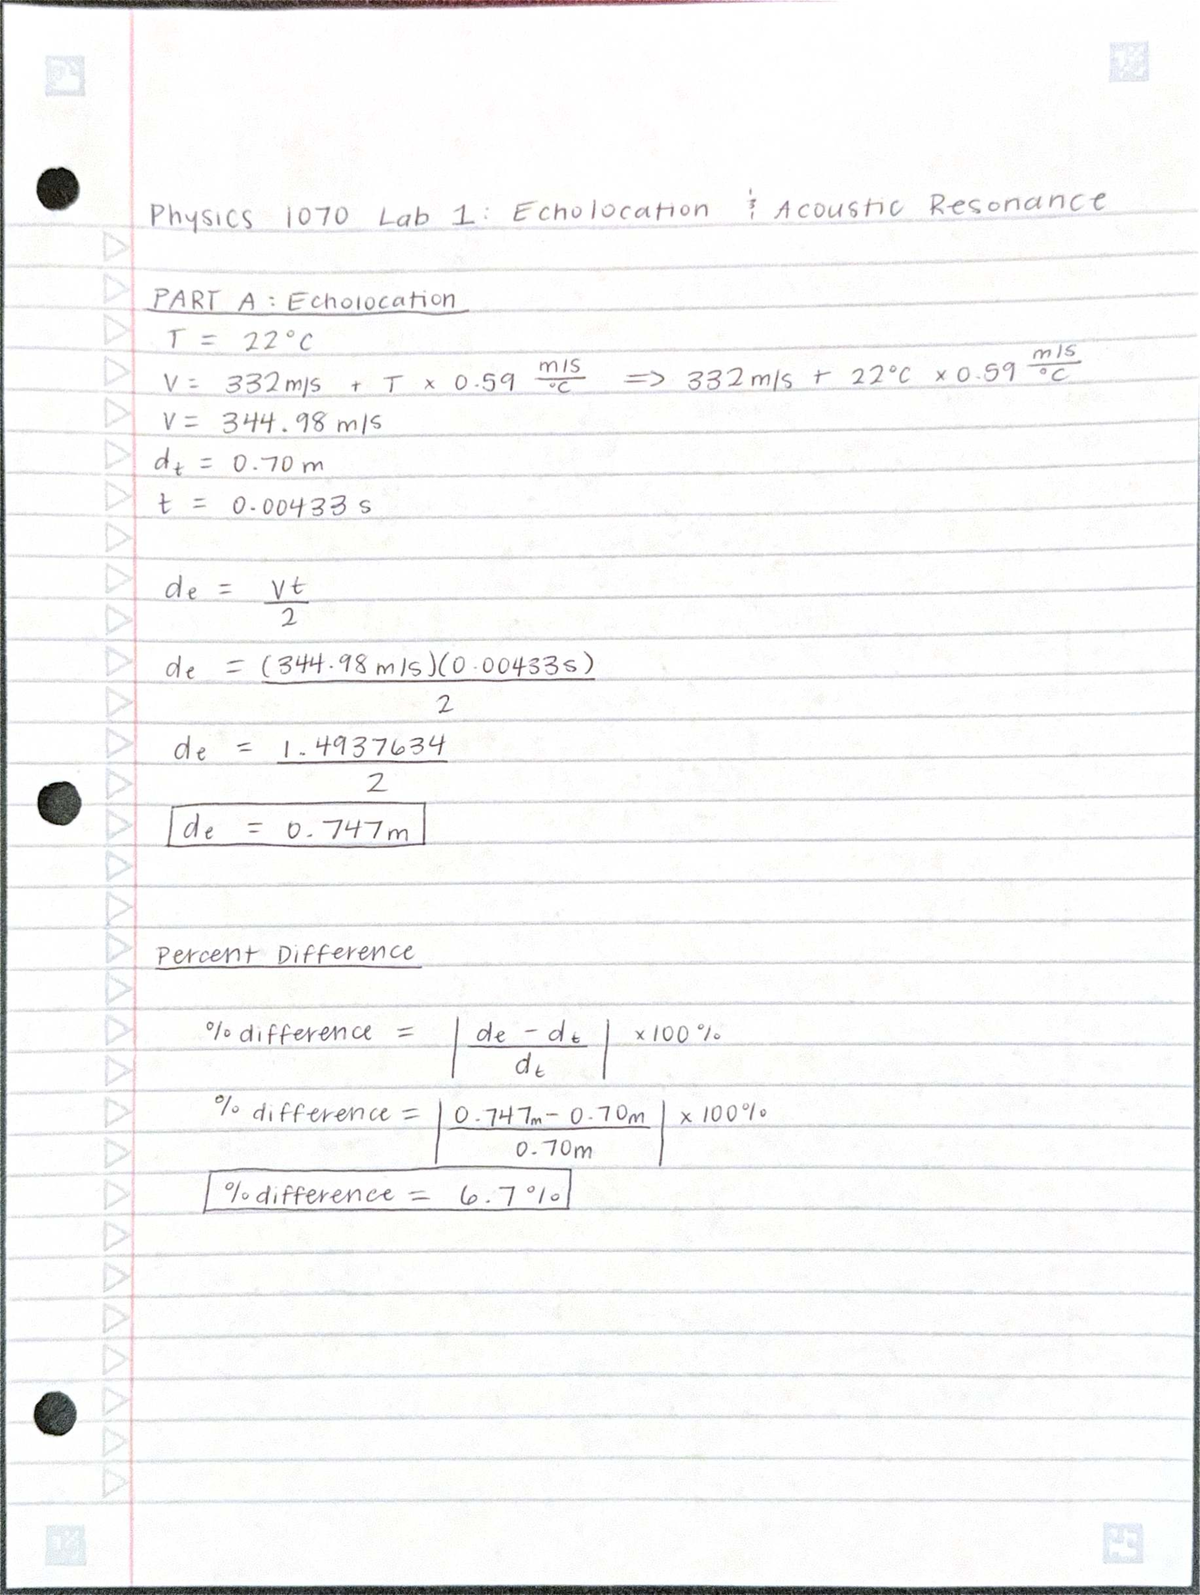 Physics 1070 Lab 1: Echolocation & Acoustic Resonance
PART A: Echolocation
T = 22°C
V = 332 m/s + T × 0.59 (m/s)/°C => 332 m/s + 22°C × 0.59 (m/s)/°C
V = 344.98 m/s
d_t = 0.70 m
t = 0.00433 s
d_e = Vt / 2
d_e = (344.98 m/s)(0.00433s) / 2
d_e = 1.4937634 / 2
d_e = 0.747m
Percent Difference
% difference = | (d_e - d_t) / d_t | × 100 %
% difference = | (0.747m - 0.70m) / 0.70m | × 100%
% difference = 6.7%